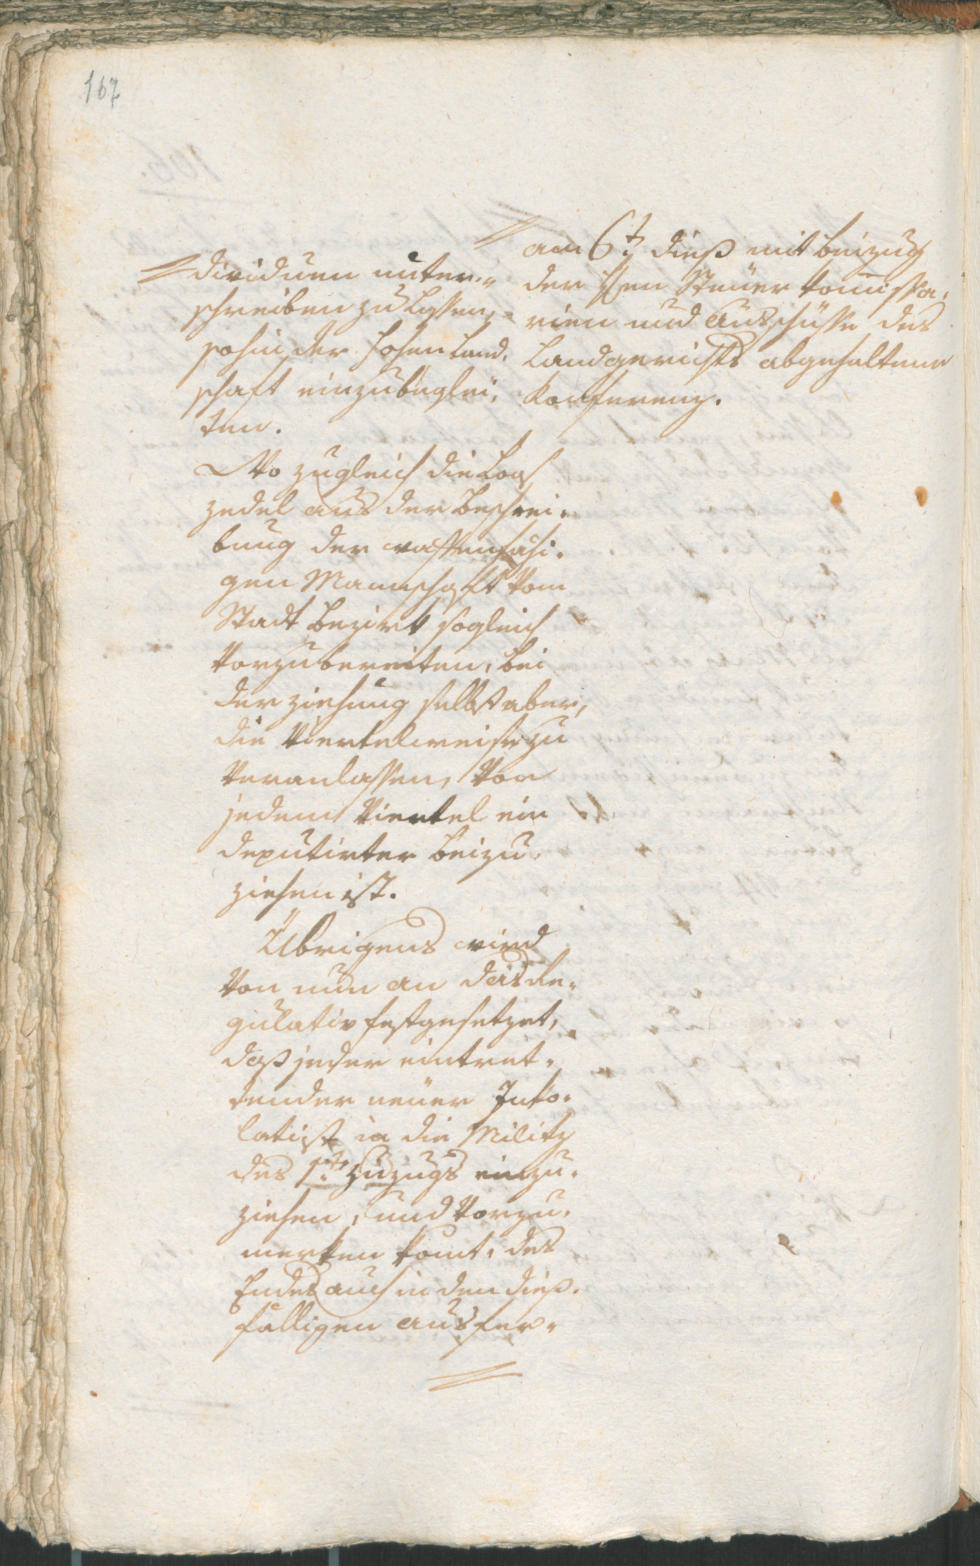 167
= dividuen unter=
schreiben zu lassen,
sohin der hohen Land=
schaft einzubeglei=
ten.
Wo zugleich die Loos
zedel aus der Beschrei=
bung der waffenfähi=
gen Mannschaft vom
Stadt Bezirk sogleich
vorzubereiten, bei
der ziehung selbst aber,
die Viertelweise zu
veranlassen, von
jedem Viertel ein
deputirter beizu=
ziehen ist.
Übrigens wird
von nun an das Re=
gulativ festgesetzet,
daß jeder eintret=
tender neuer Inko=
latist in die Militz
des 1t Zuzugs einzu=
ziehen, und vorzu=
merken komt, des
Endes auch in den dieß=
fälligen ausfer=
=
= am 6t dieß mit beizug
der Hen Steuer Kommissa=
rien und Ausschüsse des
Landgerichts abgehaltene
Konferenz.